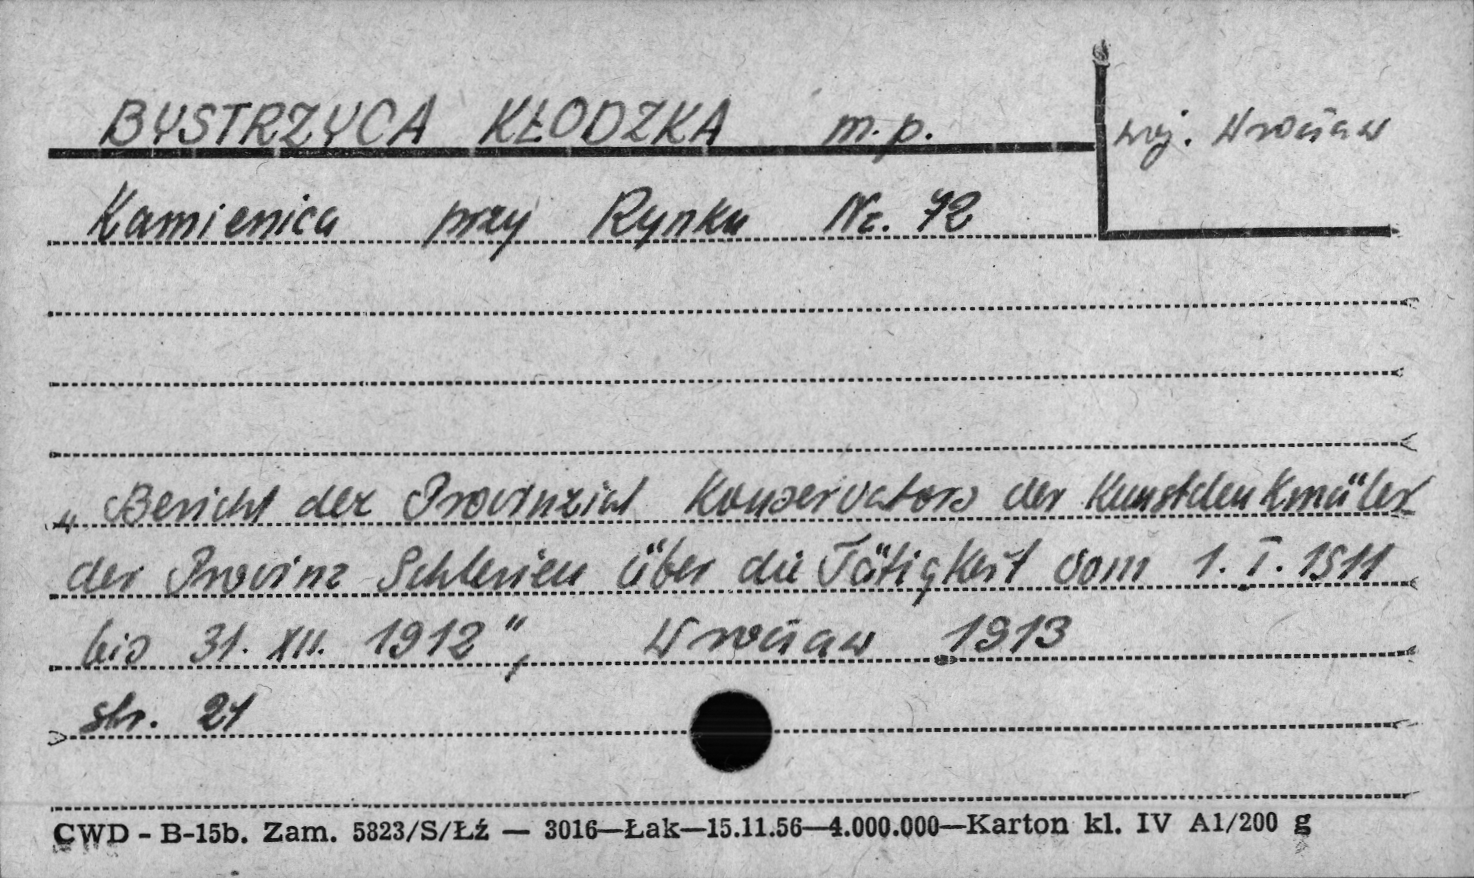 BYSTRZYCA KŁODZKA m.p.
woj. Wrocław
Kamienica przy Rynku Nr. 72
„Bericht der Provinzial Konservators der Kunstdenkmäler
der Provinz Schlesien über die Tätigkeit vom 1.I.1911
bis 31.XII. 1912", Wrocław 1913
str. 21
CWD - B-15b. Zam. 5823/S/Łź — 3016—Łak—15.11.56—4.000.000—Karton kl. IV A1/200 g